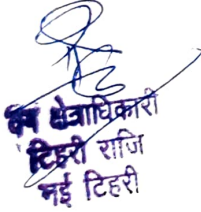 वन क्षेत्राधिकारी
टिहरी राजि
नई टिहरी